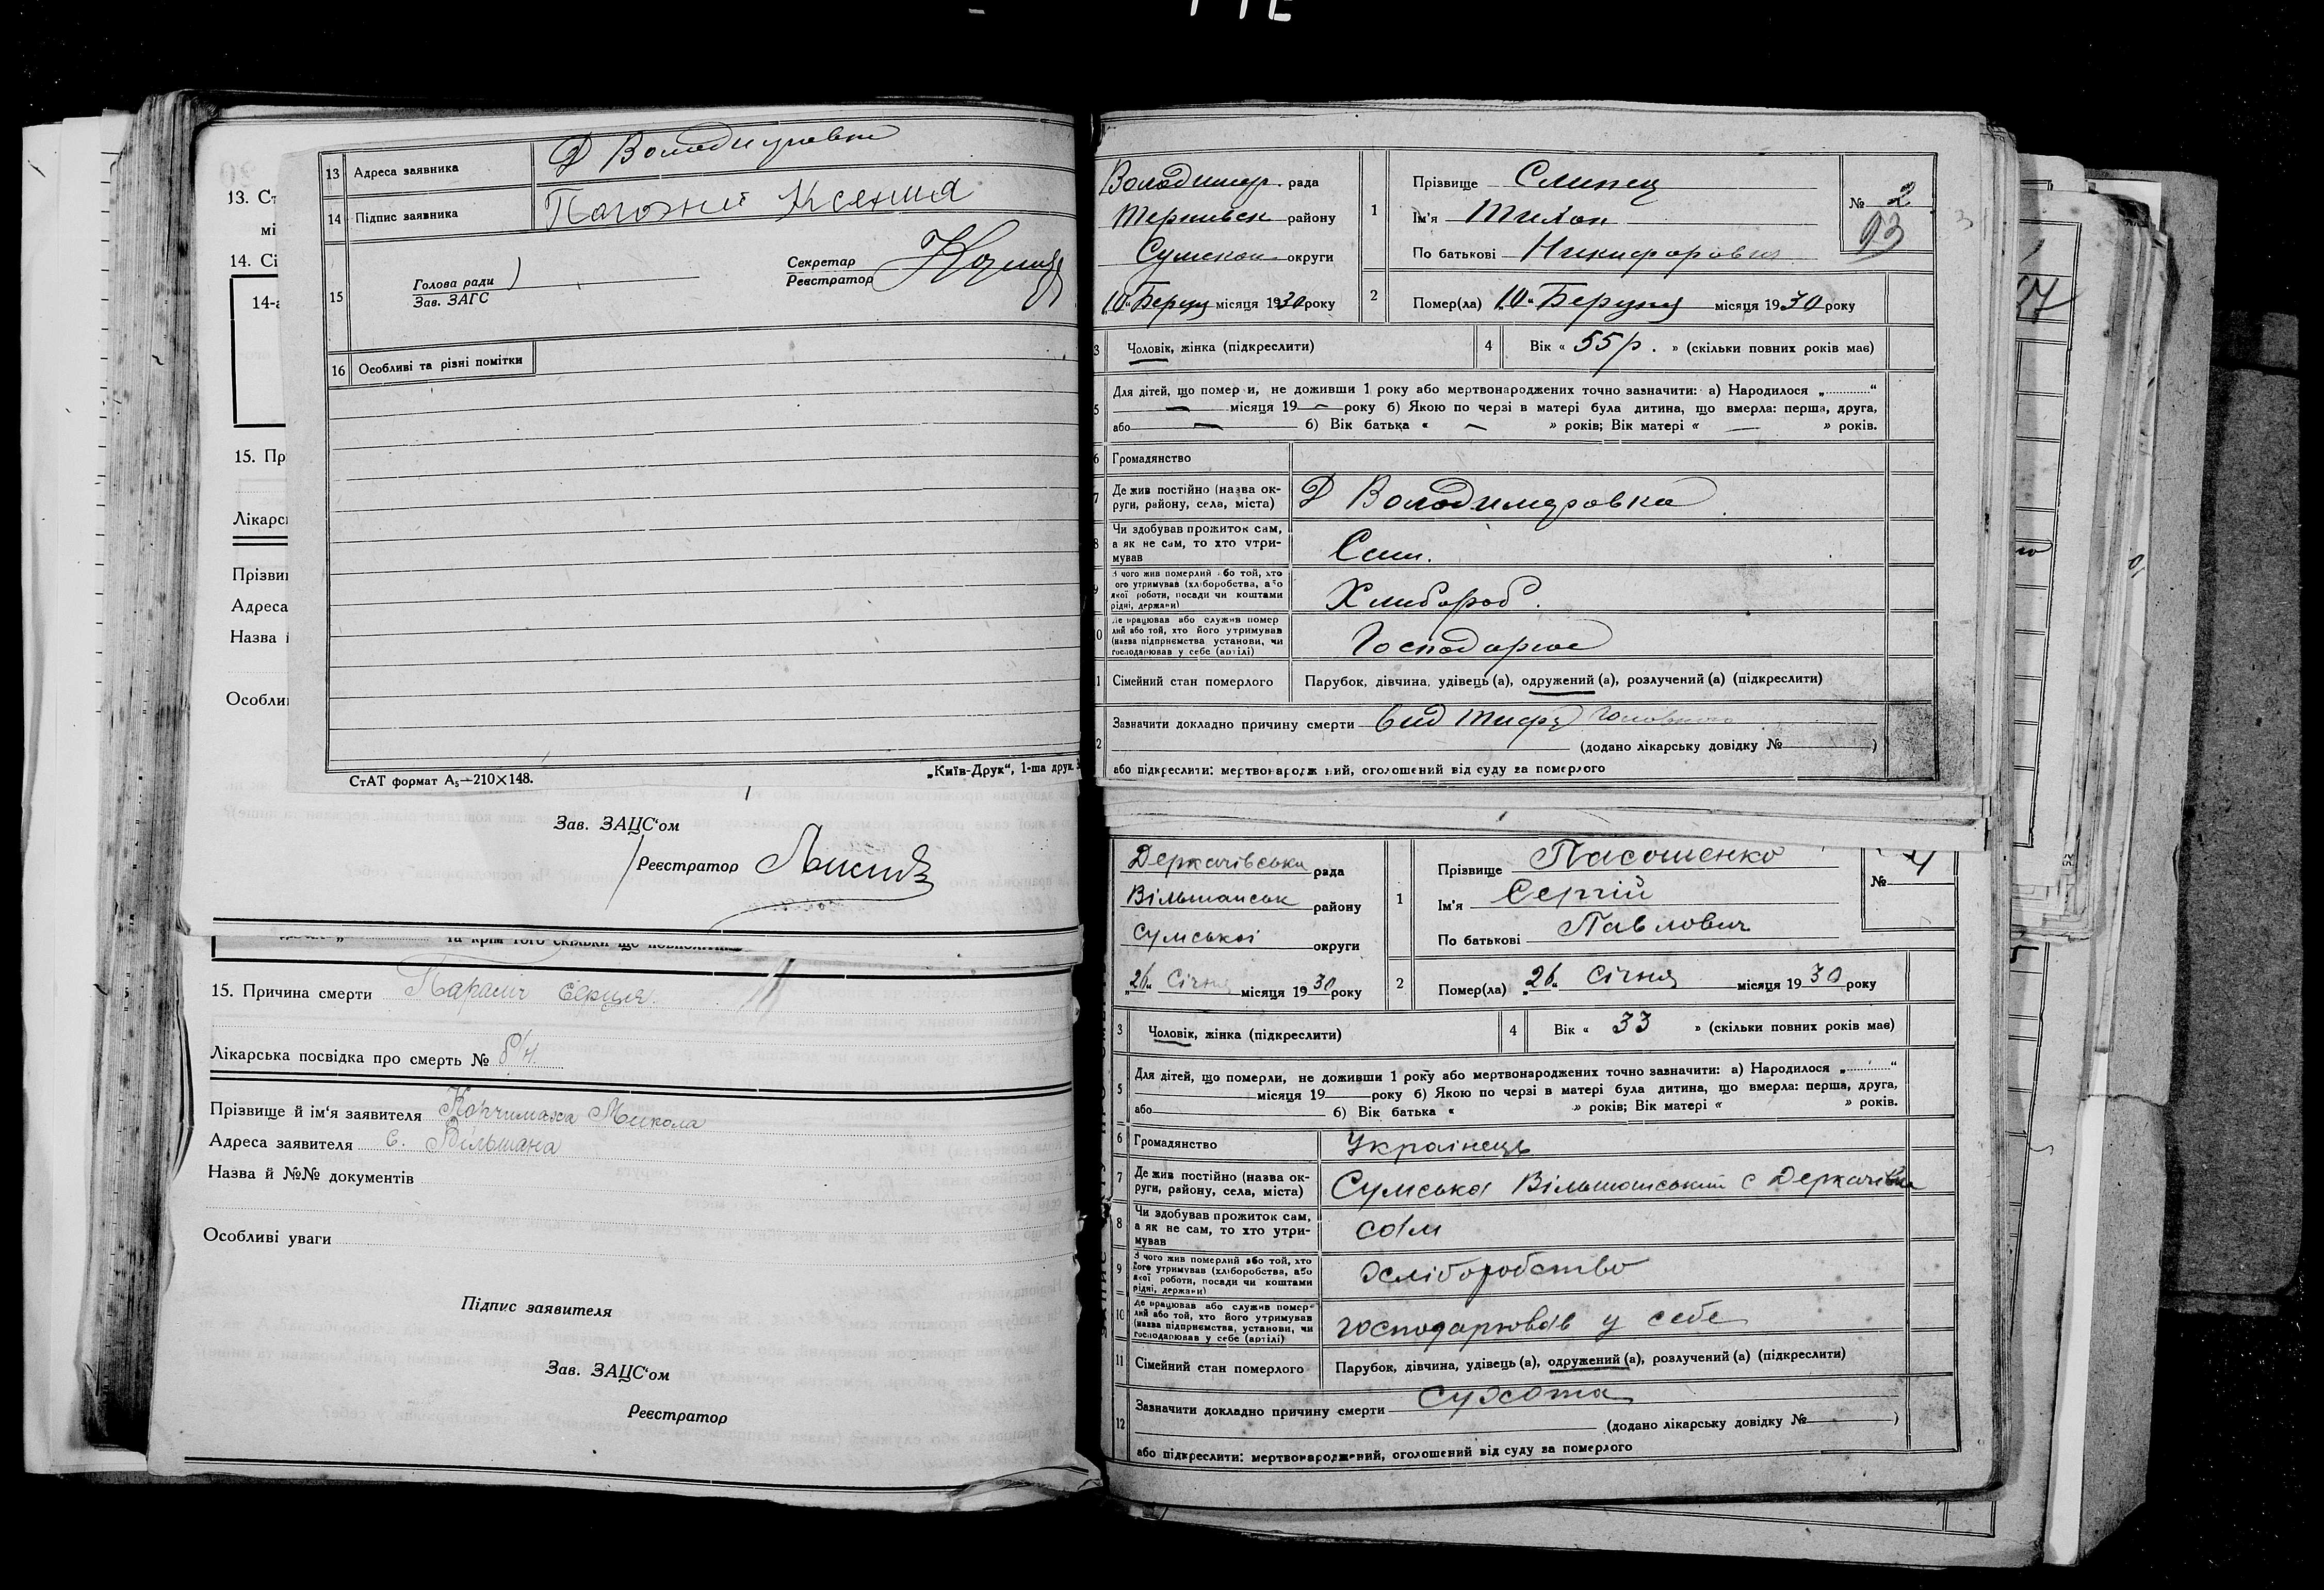 13 Адреса заявника Д Володимировка
14 Підпис заявника Ксения
Голова ради
Зав. ЗАГС
Секретар
Реєстратор
15
16 Особливі та різні помітки
СтАТ формат А₅—210×148.
„Київ-Друк“, 1-ша друк.
13. Ст
мі
14. Сі
14-а
15. Пр
Лікарсь
Прізви
Адреса
Назва
Особли
Зав. ЗАЦС‘ом
Реєстратор
15. Причина смерти Параліч серця
Лікарська посвідка про смерть № б/н.
Прізвище й ім‘я заявителя Микола
Адреса заявителя с. Вільшана
Назва й №№ документів
Особливі уваги
Підпис заявителя
Зав. ЗАЦС‘ом
Реєстратор
Володимир. рада
району
Сумской округи
„10“ місяця 1930 року
1 Прізвище Слипец
Ім'я Тихон
По батькові Никифорович
№ 2
93
2 Помер(ла) „10“ місяця 1930 року
3 Чоловік, жінка (підкреслити)
4 Вік « 55 р. » (скільки повних років має)
5 Для дітей, що померли, не доживши 1 року або мертвонароджених точно зазначити: а) Народилося „ “
— місяця 19 — року б) Якою по черзі в матері була дитина, що вмерла: перша, друга,
або — б) Вік батька « — » років; Вік матері « — » років.
6 Громадянство
7 Де жив постійно (назва округи, району, села, міста) Д Володимеровка
8 Чи здобував прожиток сам, а як не сам, то хто утримував Сам.
9 З чого жив померлий або той, хто його утримував (хліборобства, або якої роботи, посади чи коштами рідні, держави) Хлибороб.
10 Де працював або служив померлий або той, хто його утримував (назва підприємства установи, чи господарював у себе (артілі)
11 Сімейний стан померлого Парубок, дівчина, удівець (а), одружений (а), розлучений (а) (підкреслити)
12 Зазначити докладно причину смерти вид тифу
(додано лікарську довідку № )
або підкреслити: мертвонароджений, оголошений від суду за померлого
Деркачівська рада
Вільшанськ району
Сумської округи
„26“ Січня місяця 1930 року
1 Прізвище Пасошенко
Ім'я Сергій
По батькові Павлович
№ 4
2 Помер(ла) „26“ Січня місяця 1930 року
3 Чоловік, жінка (підкреслити)
4 Вік « 33 » (скільки повних років має)
5 Для дітей, що померли, не доживши 1 року або мертвонароджених точно зазначити: а) Народилося „ “
місяця 19 року б) Якою по черзі в матері була дитина, що вмерла: перша, друга,
або б) Вік батька « » років; Вік матері « » років.
6 Громадянство Українець
7 Де жив постійно (назва округи, району, села, міста) Сумська Вільшанський с Деркачівка
8 Чи здобував прожиток сам, а як не сам, то хто утримував сам
9 З чого жив померлий або той, хто його утримував (хліборобства, або якої роботи, посади чи коштами рідні, держави) хліборобство
10 Де працював або служив померлий або той, хто його утримував (назва підприємства, установи, чи господарював у себе (артілі) господарював у себе
11 Сімейний стан померлого Парубок, дівчина, удівець (а), одружений (а), розлучений (а) (підкреслити)
12 Зазначити докладно причину смерти Сухота
(додано лікарську довідку № )
або підкреслити: мертвонароджений, оголошений від суду за померлого